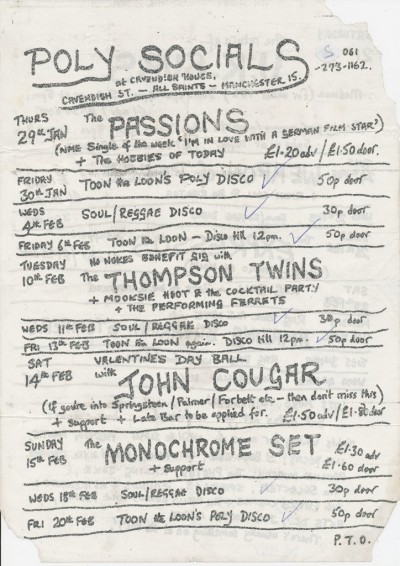 POLY SOCIALS
061
-273-1162.
at CAVENDISH HOUSE,
CAVENDISH ST. - ALL SAINTS - MANCHESTER 15.
THURS
29TH JAN
The PASSIONS
(NME Single of the week "I'M IN LOVE WITH A GERMAN FILM STAR")
+ THE HOBBIES OF TODAY £1.20 adv / £1.50 door.
FRIDAY
30TH JAN
TOON the LOON'S POLY DISCO 50p door
WEDS
4TH FEB
SOUL/REGGAE DISCO 30p door
FRIDAY 6TH FEB TOON the LOON - DISCO till 12pm. 50p door
TUESDAY
10TH FEB
NO NUKES BENEFIT GIG with
The THOMPSON TWINS
+ MOOKSIE HOOT & the COCKTAIL PARTY
+ THE PERFORMING FERRETS
WEDS 11TH FEB SOUL/REGGAE DISCO 30p door
FRI 13TH FEB TOON the LOON again. DISCO till 12pm. 50p door
SAT
14TH FEB
VALENTINES DAY BALL
with
JOHN COUGAR
(If you're into Springsteen / Palmer / Forbert etc - then don't miss this)
+ support + Late Bar to be applied for. £1.50 adv / £1.80 door
SUNDAY
15TH FEB
The MONOCHROME SET
+ support
£1.30 adv
£1.60 door
WEDS 18TH FEB SOUL/REGGAE DISCO 30p door
FRI 20TH FEB TOON the LOON'S POLY DISCO 50p door
P.T.O.